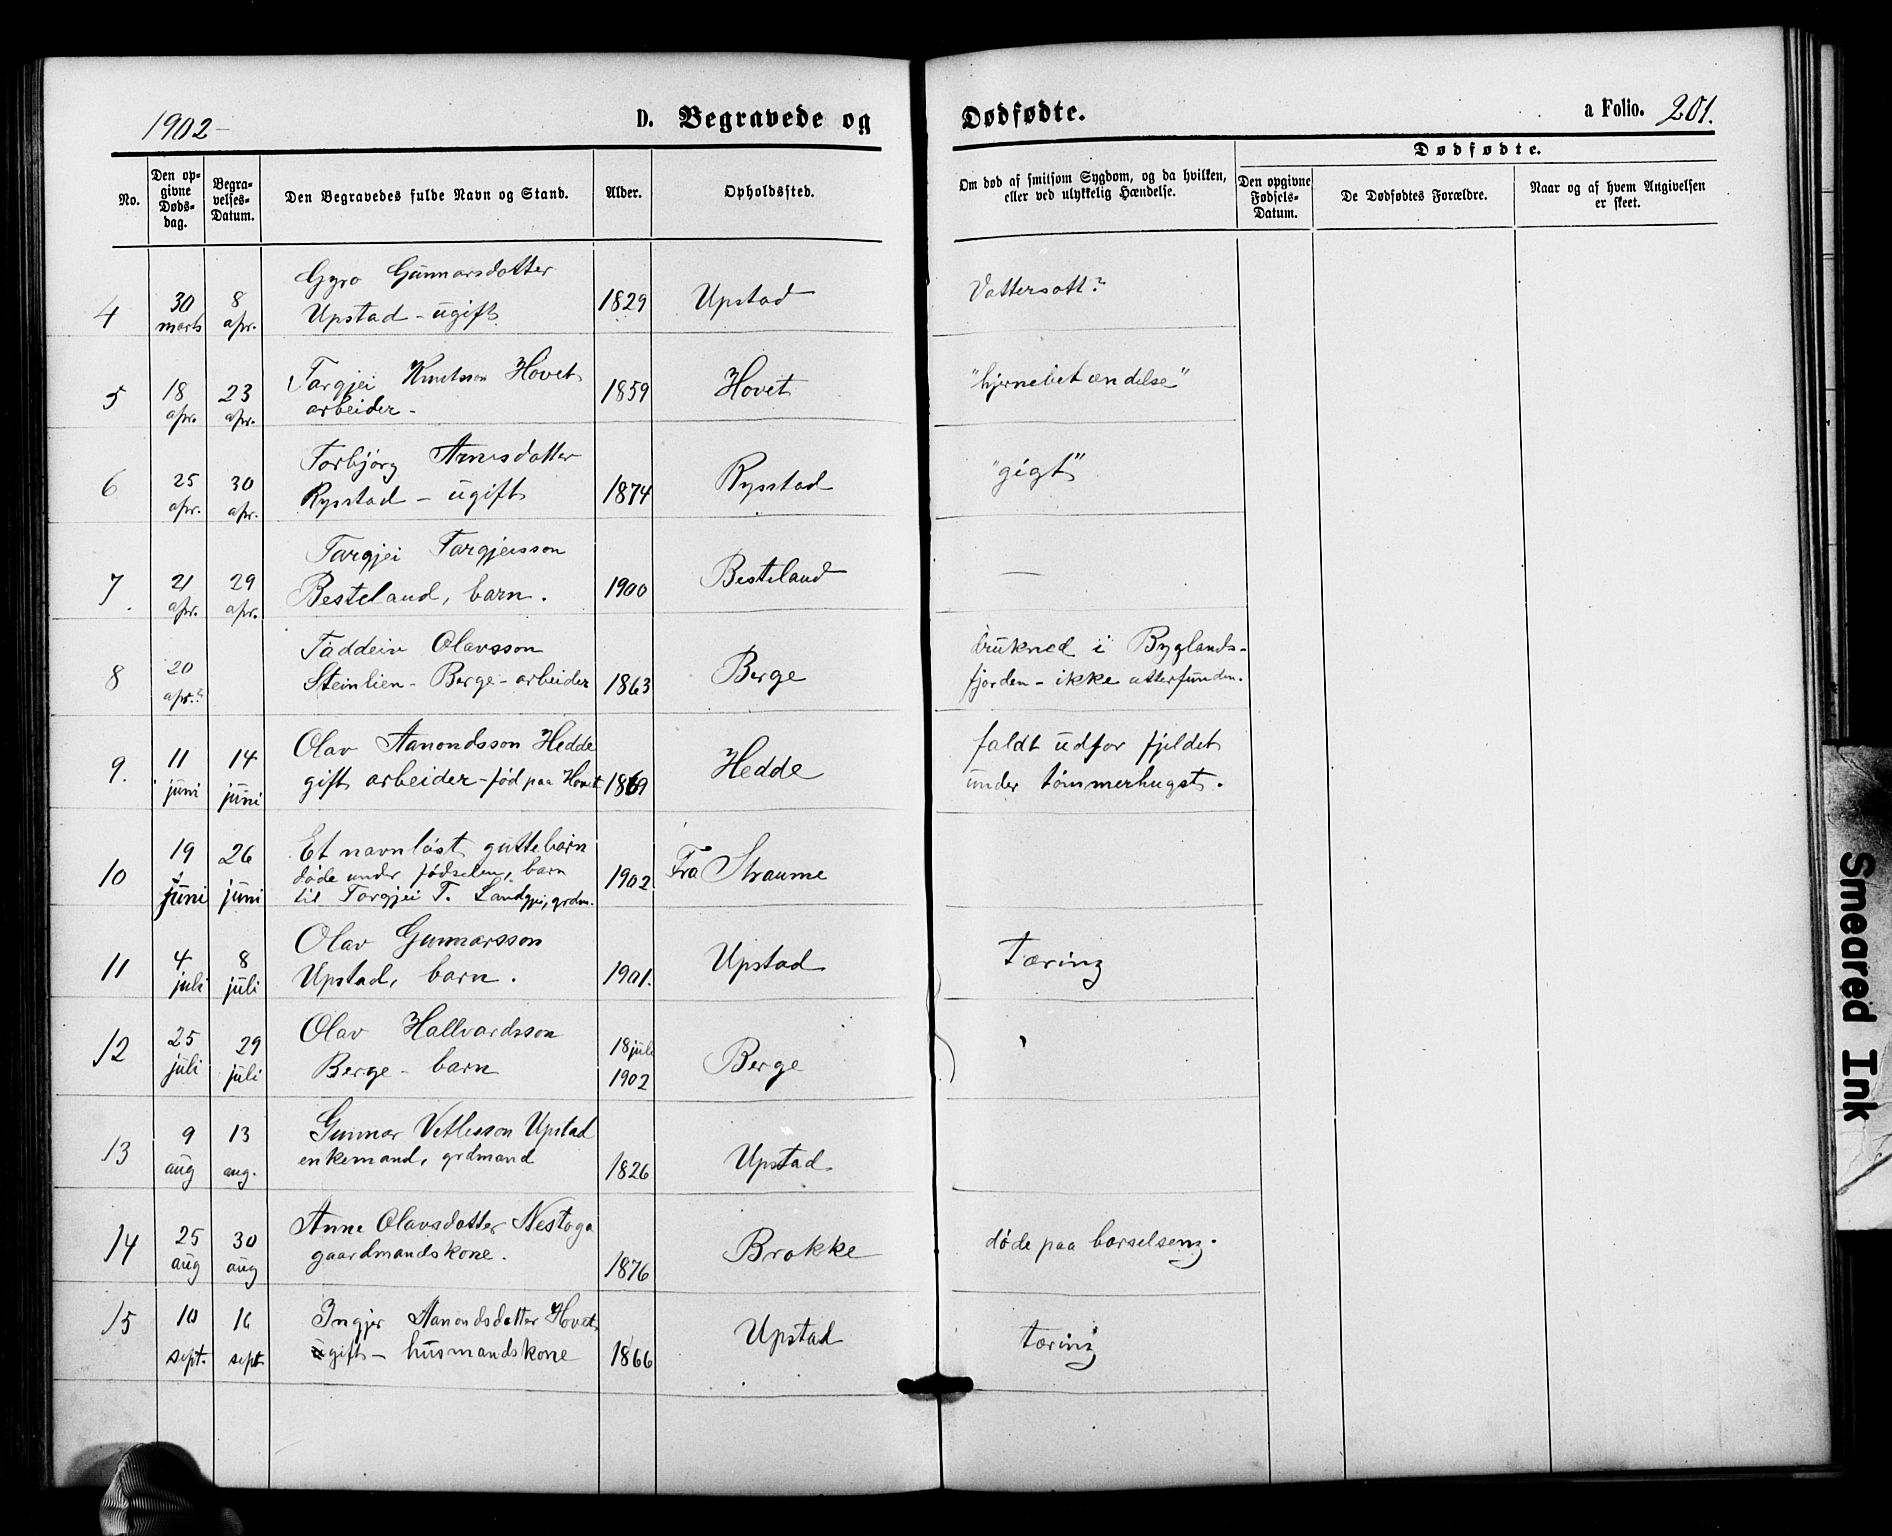 1902-
D. Begravede og
Dødfødte.
a Folio. 201.
No.
Den op-
givne
Døds-
dag.
Begra-
velses-
Datum.
Den Begravedes fulde Navn og Stand.
Alder.
Opholdssted.
Om død af smitsom Sygdom, og da hvilken,
eller ved ulykkelig Hændelse.
Dødfødte.
Den opgivne
Fødsels-
Datum.
De Dødfødtes Forældre.
Naar og af hvem Angivelsen
er skeet.
4
30
marts
8
apr.
Gyro Gunnarsdatter
Upstad - ugift
1829
Upstad
Vattersott?
5
18
apr.
23
apr.
Targjei Knutsson Hovet
arbeider -
1859
Hovet
"hjernebetændelse"
6
25
apr.
30
apr.
Torbjörg Arnesdatter
Rysstad - ugift
1874
Rysstad
"gigt"
7.
21
apr.
29
apr.
Targjei Targjeisson
Besteland, barn.
1900
Besteland
—
8
20
apr.?
Taddeiv Olavsson
Steinlien - Berge - arbeider
1863
Berge
drukned i Byglands-
fjorden - ikke atterfunden.
9.
11
juni
14
juni
Olav Aanondsson Hedde
gift arbeider - fød paa Hovet
1869
Hedde
faldt udfor fjeldet
under tømmerhugst.
10
19
juni
26
juni
Et navnløst guttebarn
døde under fødselen, barn
til Targjei T. Landgjei, grdm.
1902
Fra Straume
11
4
juli
8
juli
Olav Gunnarsson
Upstad, barn.
1901.
Upstad
Tæring
12
25
juli
29
juli
Olav Hallvardsson
Berge - barn
18 juli
1902
Berge
13
9
aug
13
aug.
Gunnar Vetlesson Upstad
enkemand, grdmand
1826
Upstad
14
25
aug
30
aug
Anne Olavsdatter Nestoga
gaardmandskone.
1876
Brokke
døde paa barselseng.
15
10
sept.
16
sept
Ingjer Aanondsdatter Hovet
gift - husmandskone
1866
Upstad
tæring
Smeared Ink